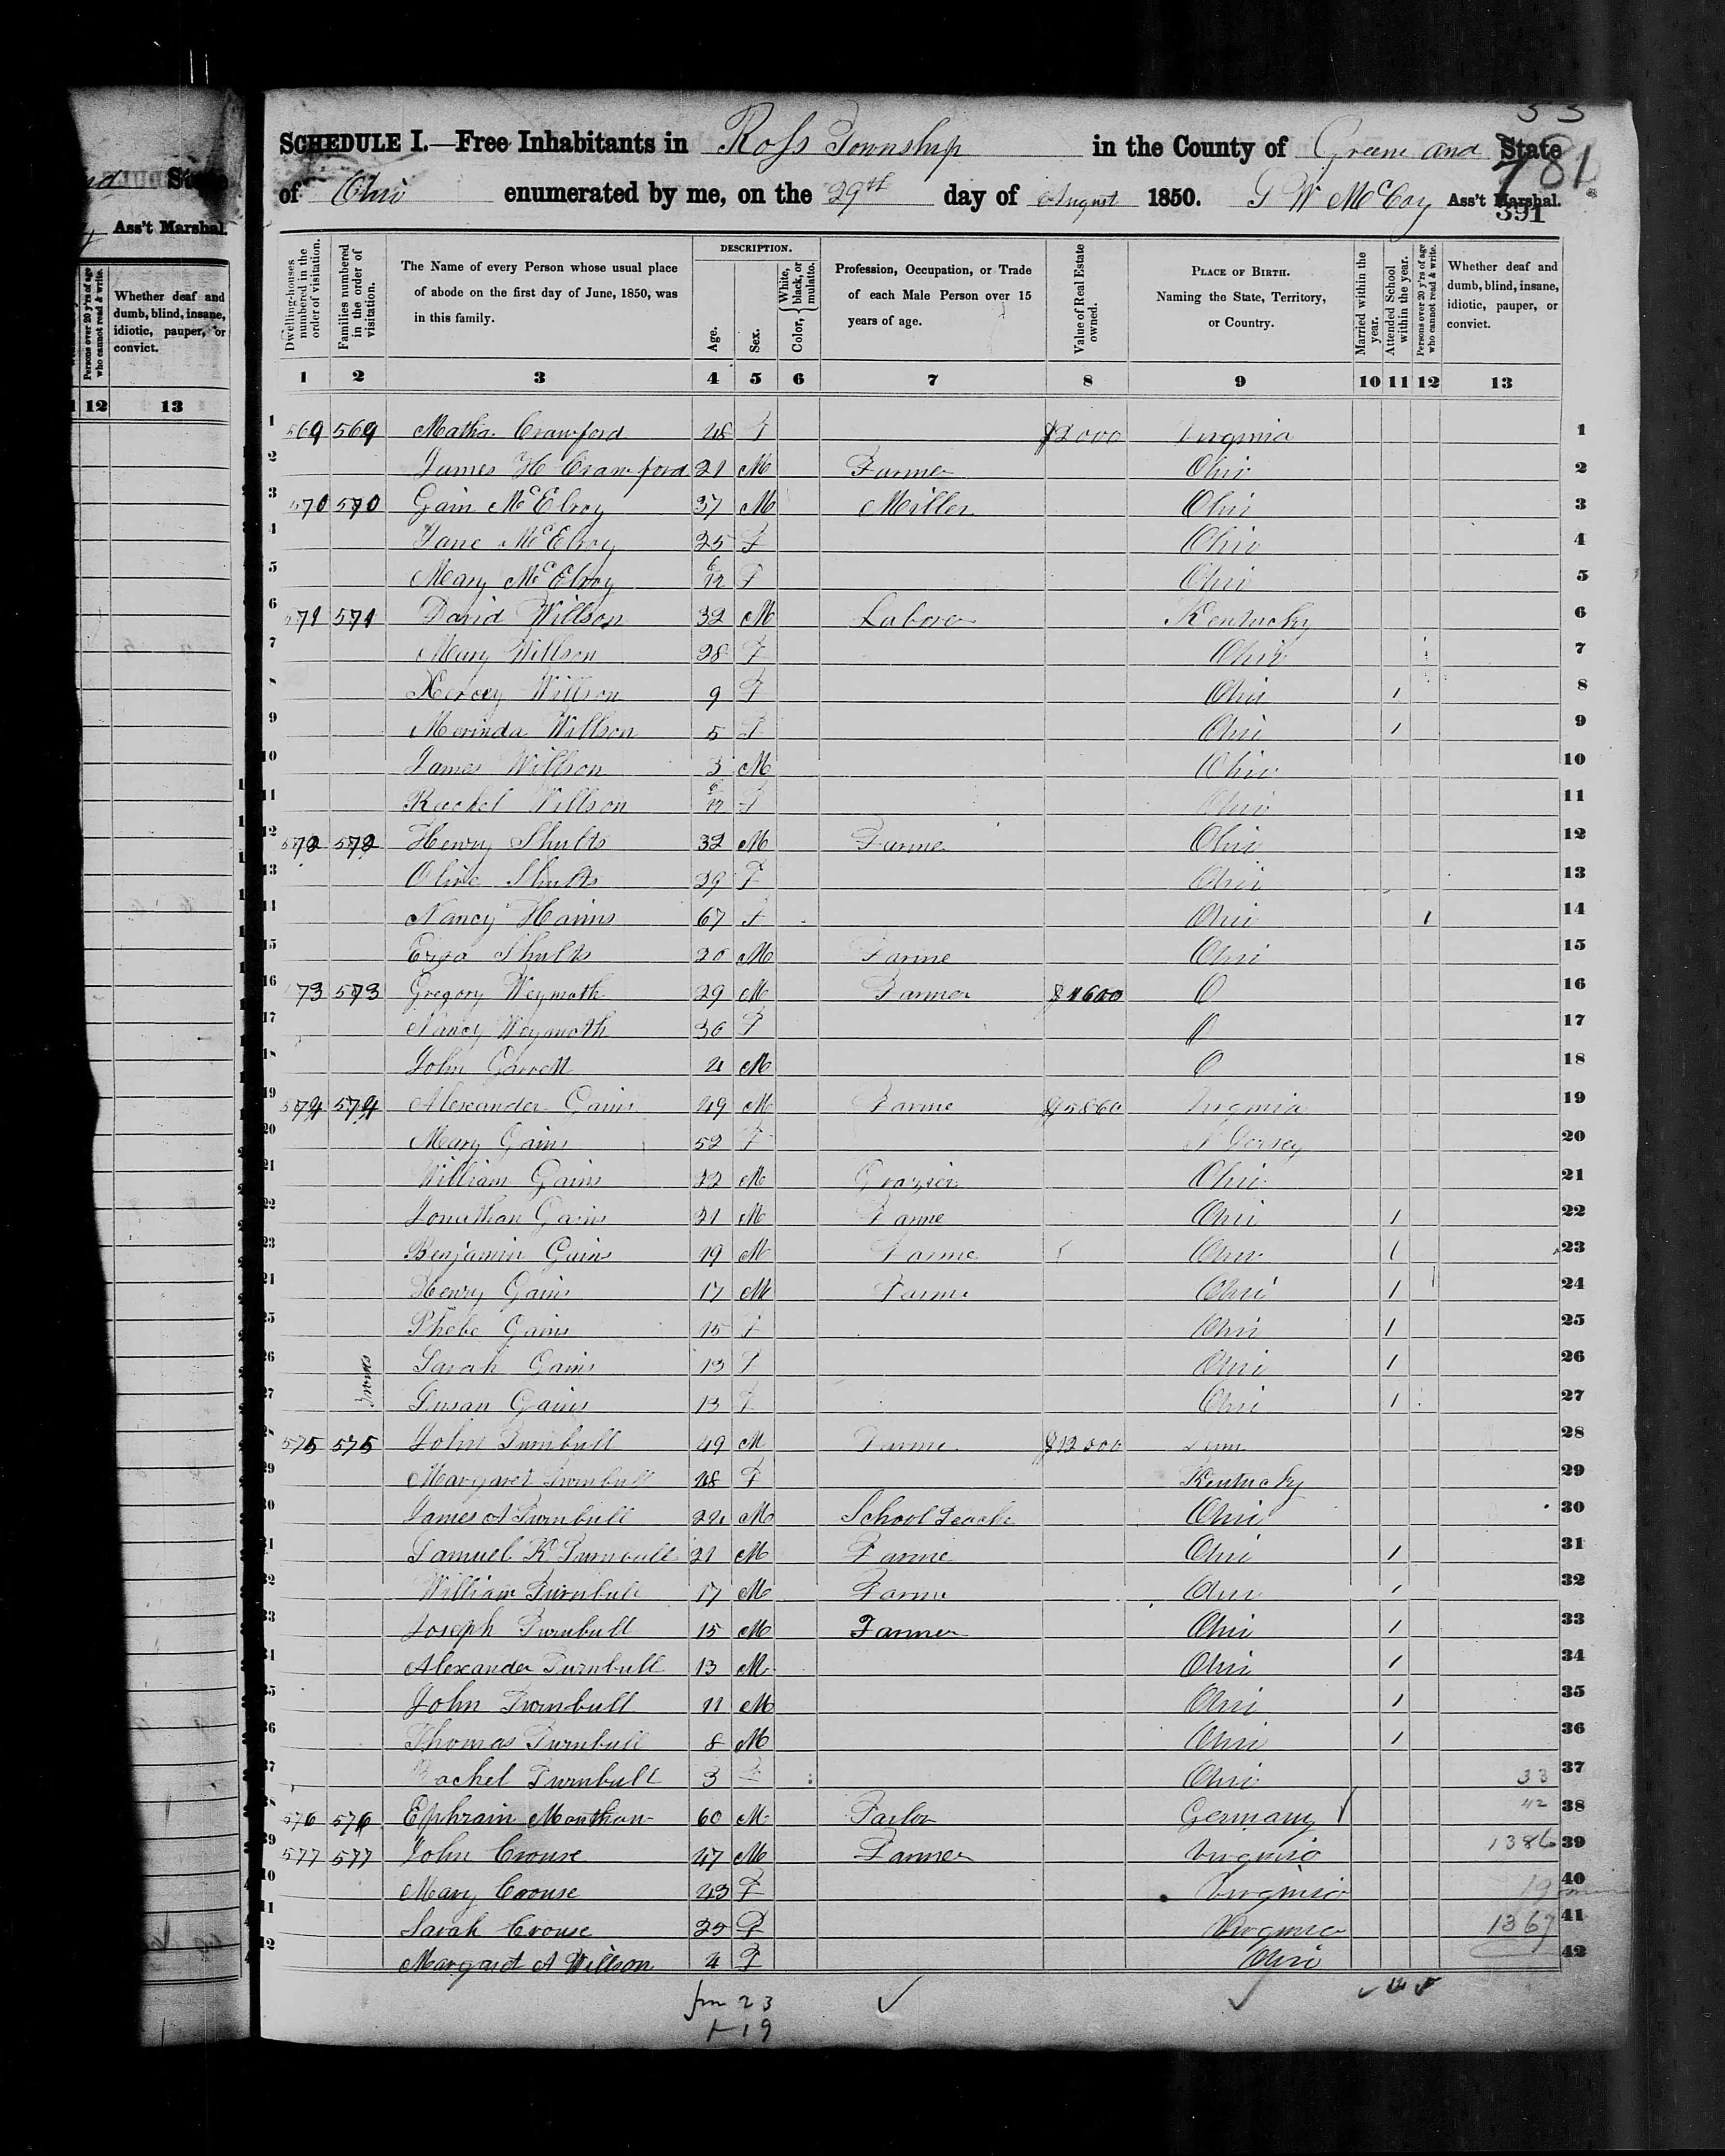 33
SCHEDULE I.—Free Inhabitants in Ross Township in the County of Greene and State
781
of Ohio enumerated by me, on the 29th day of August 1850. G W McCoy Ass't Marshal.
391
State
Ass't Marshal.
Persons over 20 y'rs of age who cannot read & write.
Whether deaf and dumb, blind, insane, idiotic, pauper, or convict.
12 13
Dwelling-houses numbered in the order of visitation.
Families numbered in the order of visitation.
The Name of every Person whose usual place of abode on the first day of June, 1850, was in this family.
DESCRIPTION.
Age.
Sex.
Color, { White, black, or mulatto.
Profession, Occupation, or Trade of each Male Person over 15 years of age.
Value of Real Estate owned.
PLACE OF BIRTH. Naming the State, Territory, or Country.
Married within the year.
Attended School within the year.
Persons over 20 y'rs of age who cannot read & write.
Whether deaf and dumb, blind, insane, idiotic, pauper, or convict.
1 2 3 4 5 6 7 8 9 10 11 12 13
1 569 569 Matha Crawford 48 F $2000 Virginia 1
2 James H Crawford 21 M Farmer Ohio 2
3 570 570 Gain McElroy 37 M Miller Ohio 3
4 Jane McElroy 25 F Ohio 4
5 Mary McElroy 6/12 F Ohio 5
6 571 571 David Willson 32 M Laborer Kentucky 6
7 Mary Willson 28 F Ohio 7
8 Willson 9 F Ohio 1 8
9 Merinda Willson 5 F Ohio 1 9
10 James Willson 3 M Ohio 10
11 Rachel Willson 6/12 F Ohio 11
12 572 572 Henry Shults 32 M Farmer Ohio 12
13 Olive Shults 29 F Ohio 13
14 Nancy Hains 67 F Ohio 1 14
15 Shults 20 M Farme Ohio 15
16 573 573 Gregory Weymoth 29 M Farmer $1600 O 16
17 Nancy Weymoth 36 F O 17
18 John Garrett 4 M O 18
19 574 574 Alexander Gains 49 M Farme $5860 Virginia 19
20 Mary Gains 52 F N Jersey 20
21 William Gains 22 M Grazier Ohio 21
22 Jonathan Gains 21 M Farme Ohio 1 22
23 Benjamin Gains 19 M Farme Ohio 1 23
24 Henry Gains 17 M Farme Ohio 1 24
25 Phebe Gains 15 F Ohio 1 25
26 Sarah Gains 13 F Ohio 1 26
27 Susan Gains 13 F Ohio 1 27
28 575 575 John Turnbull 49 M Farme $12500 Tenn 28
29 Margaret Turnbull 48 F Kentucky 29
30 James A Turnbull 24 M School Teache Ohio 30
31 Samuel K Turnbull 21 M Farme Ohio 1 31
32 William Turnbull 17 M Farme Ohio 1 32
33 Joseph Turnbull 15 M Farmer Ohio 1 33
34 Alexander Turnbull 13 M Ohio 1 34
35 John Turnbull 11 M Ohio 1 35
36 Thomas Turnbull 8 M Ohio 1 36
37 Rachel Turnbull 3 F Ohio 33 37
38 576 576 Ephraim Monthan 60 M Tailor Germany 42 38
39 577 577 John Crouse 47 M Farmer Virginia 1386 39
40 Mary Crouse 43 F Virginia 19 40
41 Sarah Crouse 25 F Virginia 1367 41
42 Margaret A Willson 4 F Ohio 42
23
19